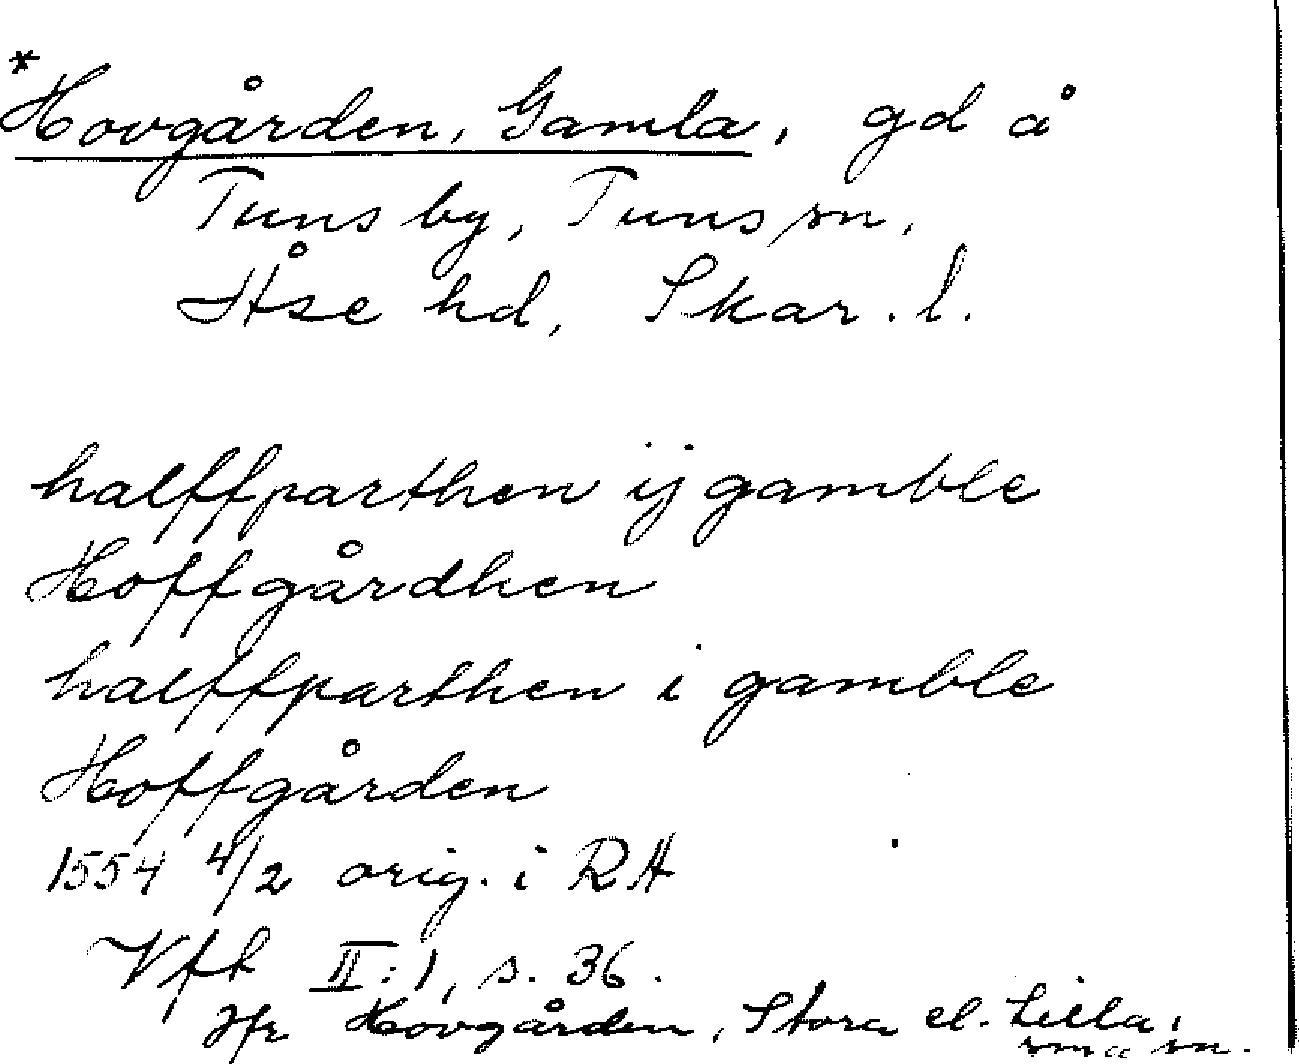 *
Hovgården, Gamla, gd å
Tuns by, Tuns sn,
Åse hd, Skar. l.
halffparthen ij gamble
Hoffgårdhen
halffparthen i gamble
Hoffgården
1554 4/2 orig. i RA
Vft II:1, s. 36.
Jfr Hovgården, Stora el. Lilla,
sma sn.